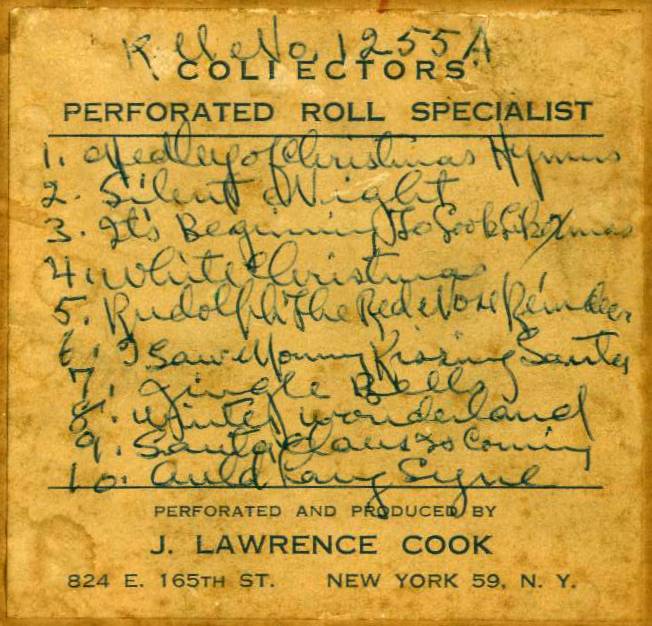 Roll No. 1255A
COLLECTORS'
PERFORATED ROLL SPECIALIST
1. Medley of Christmas Hymns
2. Silent Night
3. It's Beginning To Look Like Xmas
4. White Christmas
5. Rudolph The Red Nose Reindeer
6. I Saw Mommy Kissing Santa
7. Jingle Bells
8. Winter Wonderland
9. Santa Claus Is Coming
10. Auld Lang Syne
PERFORATED AND PRODUCED BY
J. LAWRENCE COOK
824 E. 165TH ST. NEW YORK 59, N. Y.